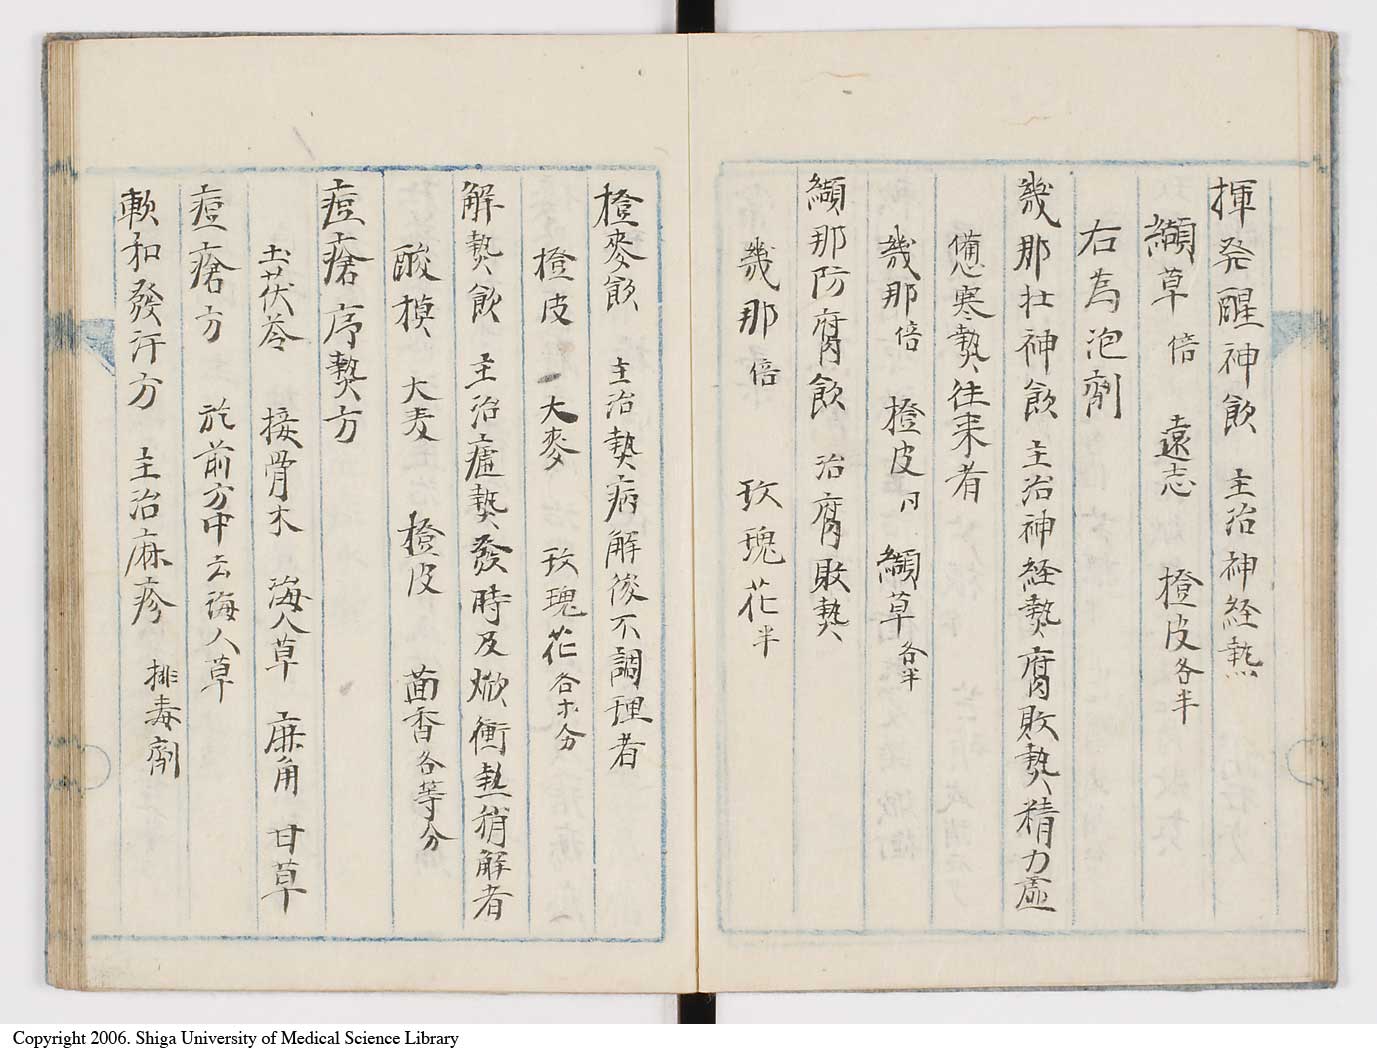 揮発醒神飲 主治神経熱
纈草 倍 遠志 橙皮 各半
右為泡劑
幾那壮神飲 主治神経熱腐敗熱精力虚
憊寒熱往来者
幾那 倍 橙皮 同 纈草 各半
纈那防腐飲 治腐敗熱
幾那 倍 玫瑰花 半
橙麥飲 主治熱病解後不調理者
橙皮 大麥 玫瑰花 各等分
解熱飲 主治瘧熱發時及焮衝熱稍解者
酸模 大麦 橙皮 茴香 各等分
痘瘡序熱方
土茯苓 接骨木 海人草 麻角 甘草
痘瘡方 於前方中去海人草
軟和發汗方 主治麻疹 排毒劑
Copyright 2006. Shiga University of Medical Science Library